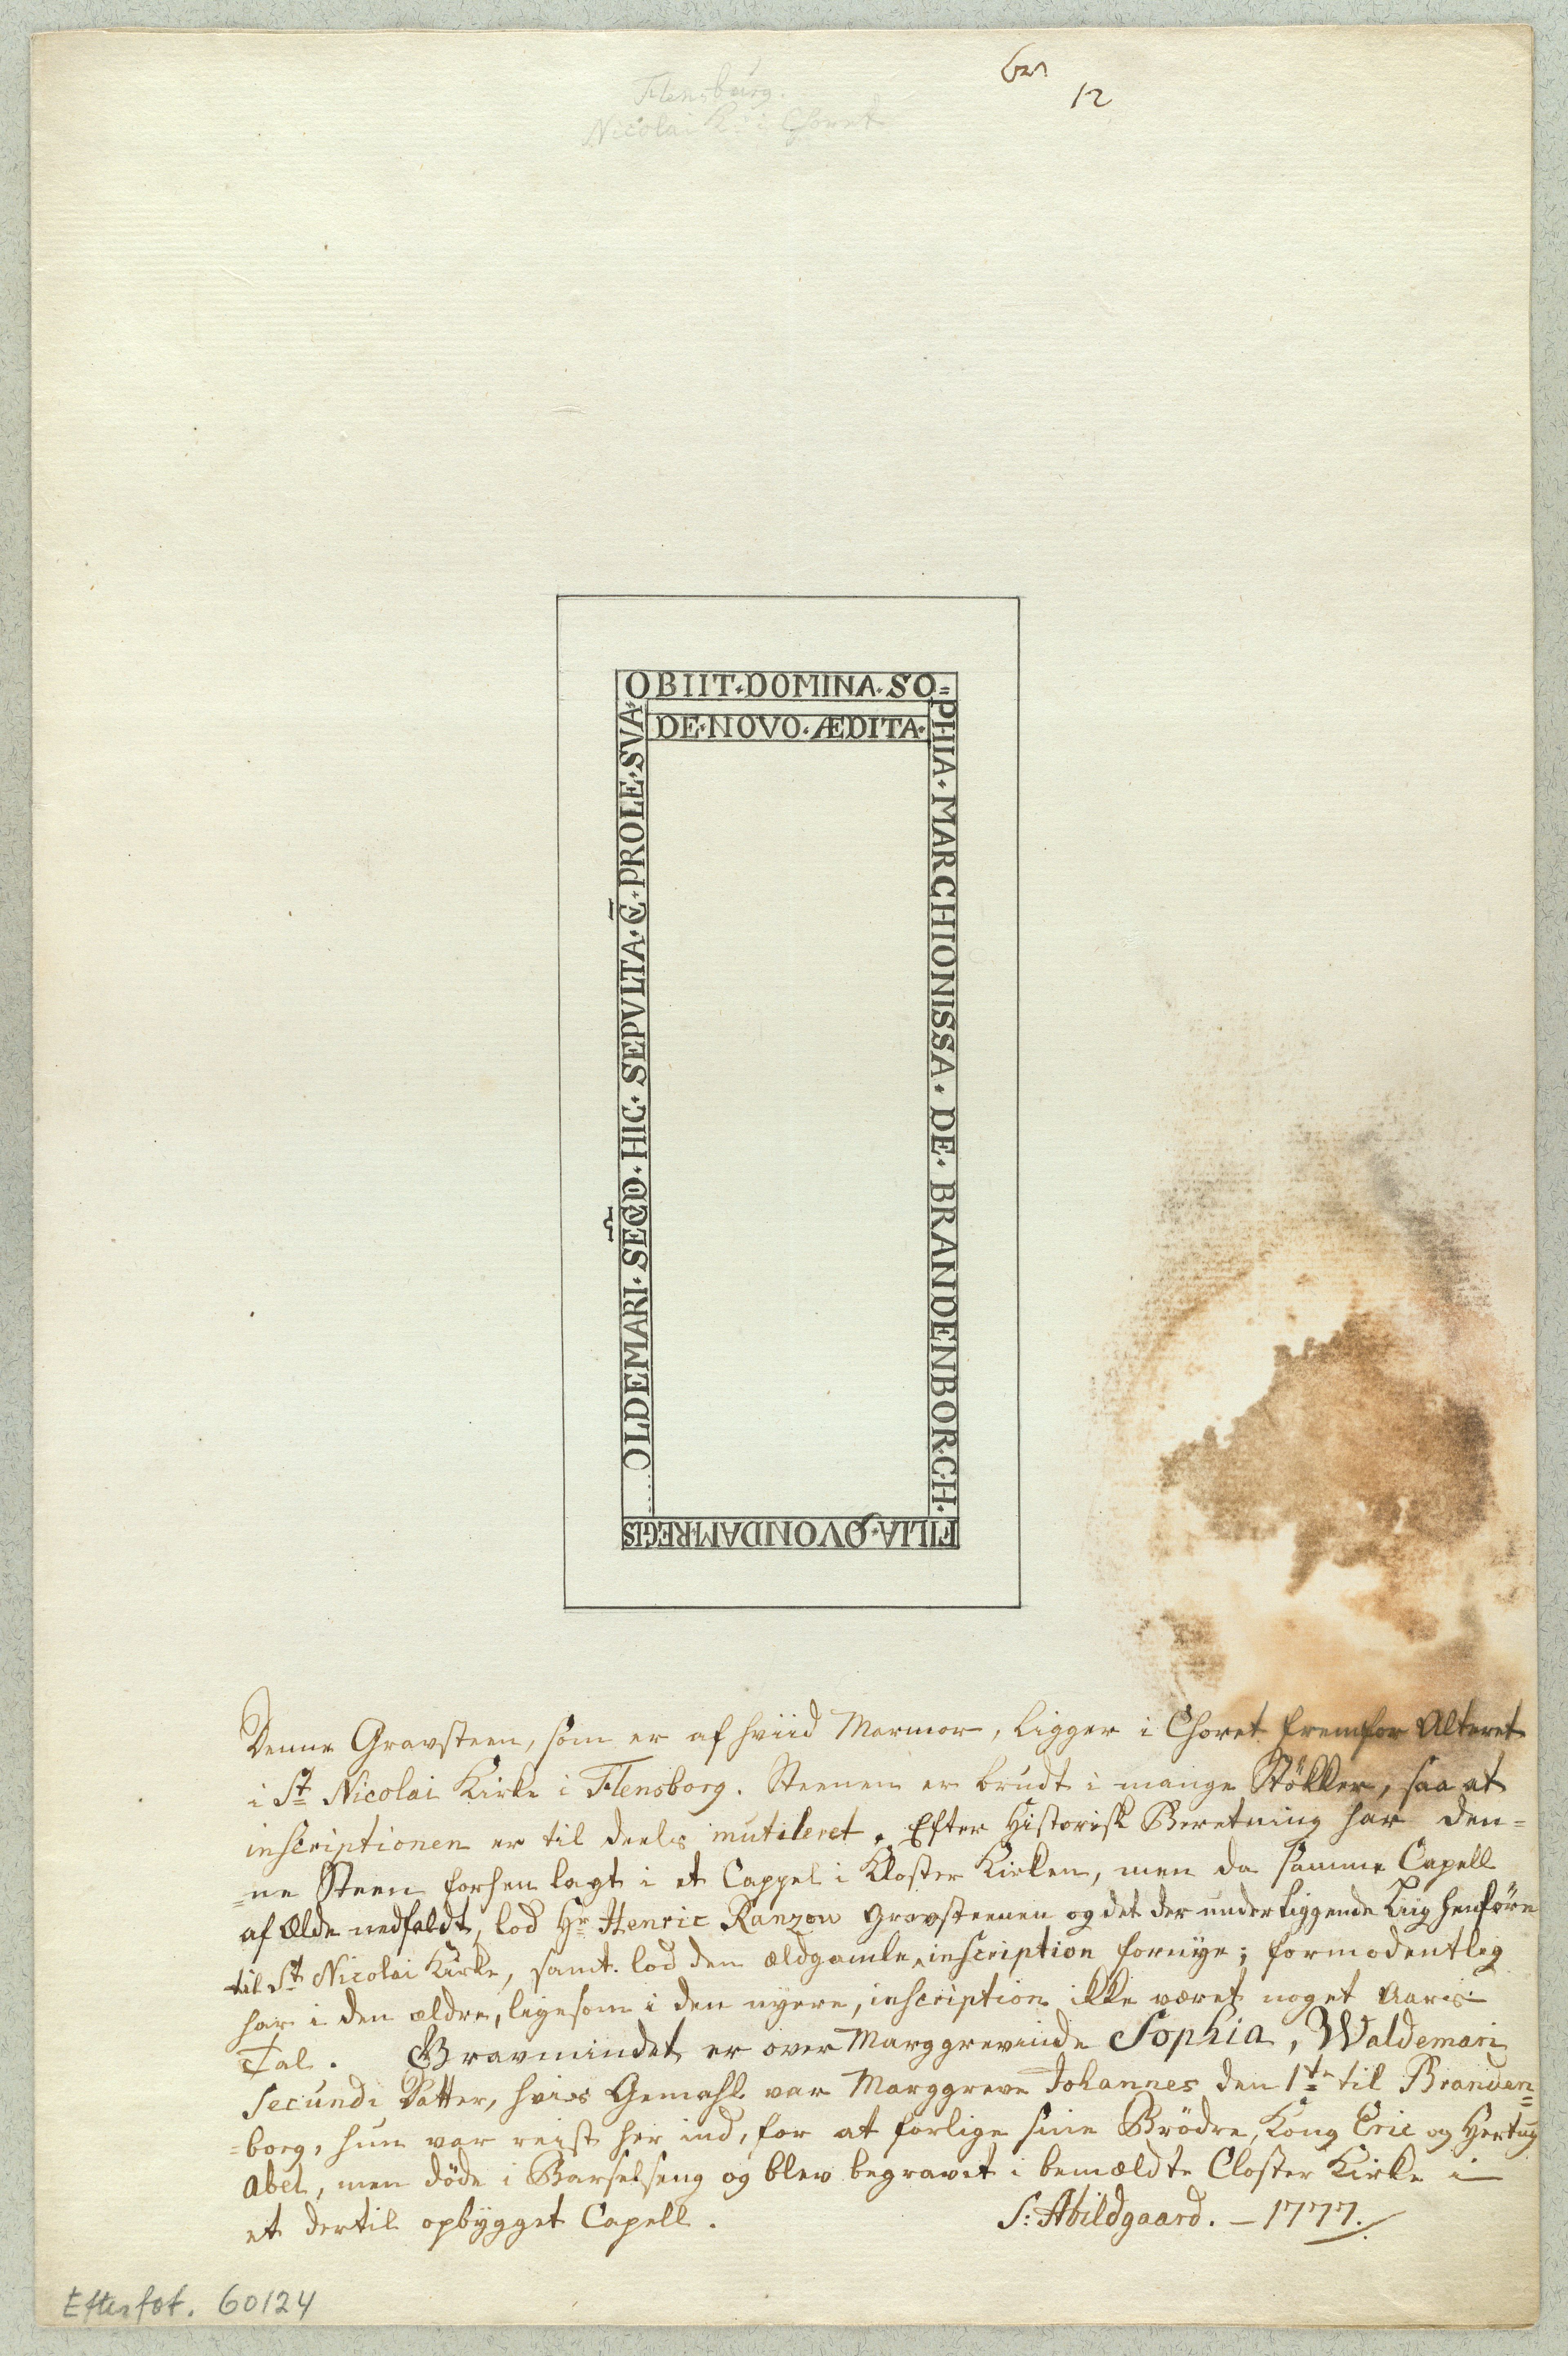 Flensburg.
Nicolai K. i Choret
12
OBIIT·DOMINA·SO=
PHIA·MARCHIONISSA·DE·BRANDENBORCH·
FILIA·QVONDAM·REGIS
......OLDEMARI·SEC̃D̃O·HIC·SEPVLTA·C̄·PROLE·SVA·
DE·NOVO·ÆDITA·
Denne Gravsteen, som er af hviid Marmor, ligger i Choret fremfor Alteret
i St Nicolai Kirke i Flensborg. Steenen er brudt i mange Støkker, saa at
inscriptionen er til deels mutileret. Efter Historisk Beretning har den=
=ne Steen forhen lagt i et Cappel i Kloster Kirken, men da samme Capell
af Ælde nedfaldt, lod Hr Henric Ranzow Gravsteenen og det der underliggende Liig henføre
til St Nicolai Kirke, samt lod den ældgamle inscription fornye; formodentlig
har i den ældre, ligesom i den nyere, inscription ikke været noget Aars-
Tal. Gravmindet er over Marggrevinde Sophia, Waldemari
Secundi Datter, hvis Gemahl var Marggreve Johannes den 1te til Branden=
=borg, hun var reist her ind, for at forlige sine Brödre, Kong Eric og Hertug
Abel, men döde i Barselseng og blev begravet i bemældte Closter Kirke i
et dertil opbygget Capell.
S: Abildgaard. – 1777.
Efterfot. 60124